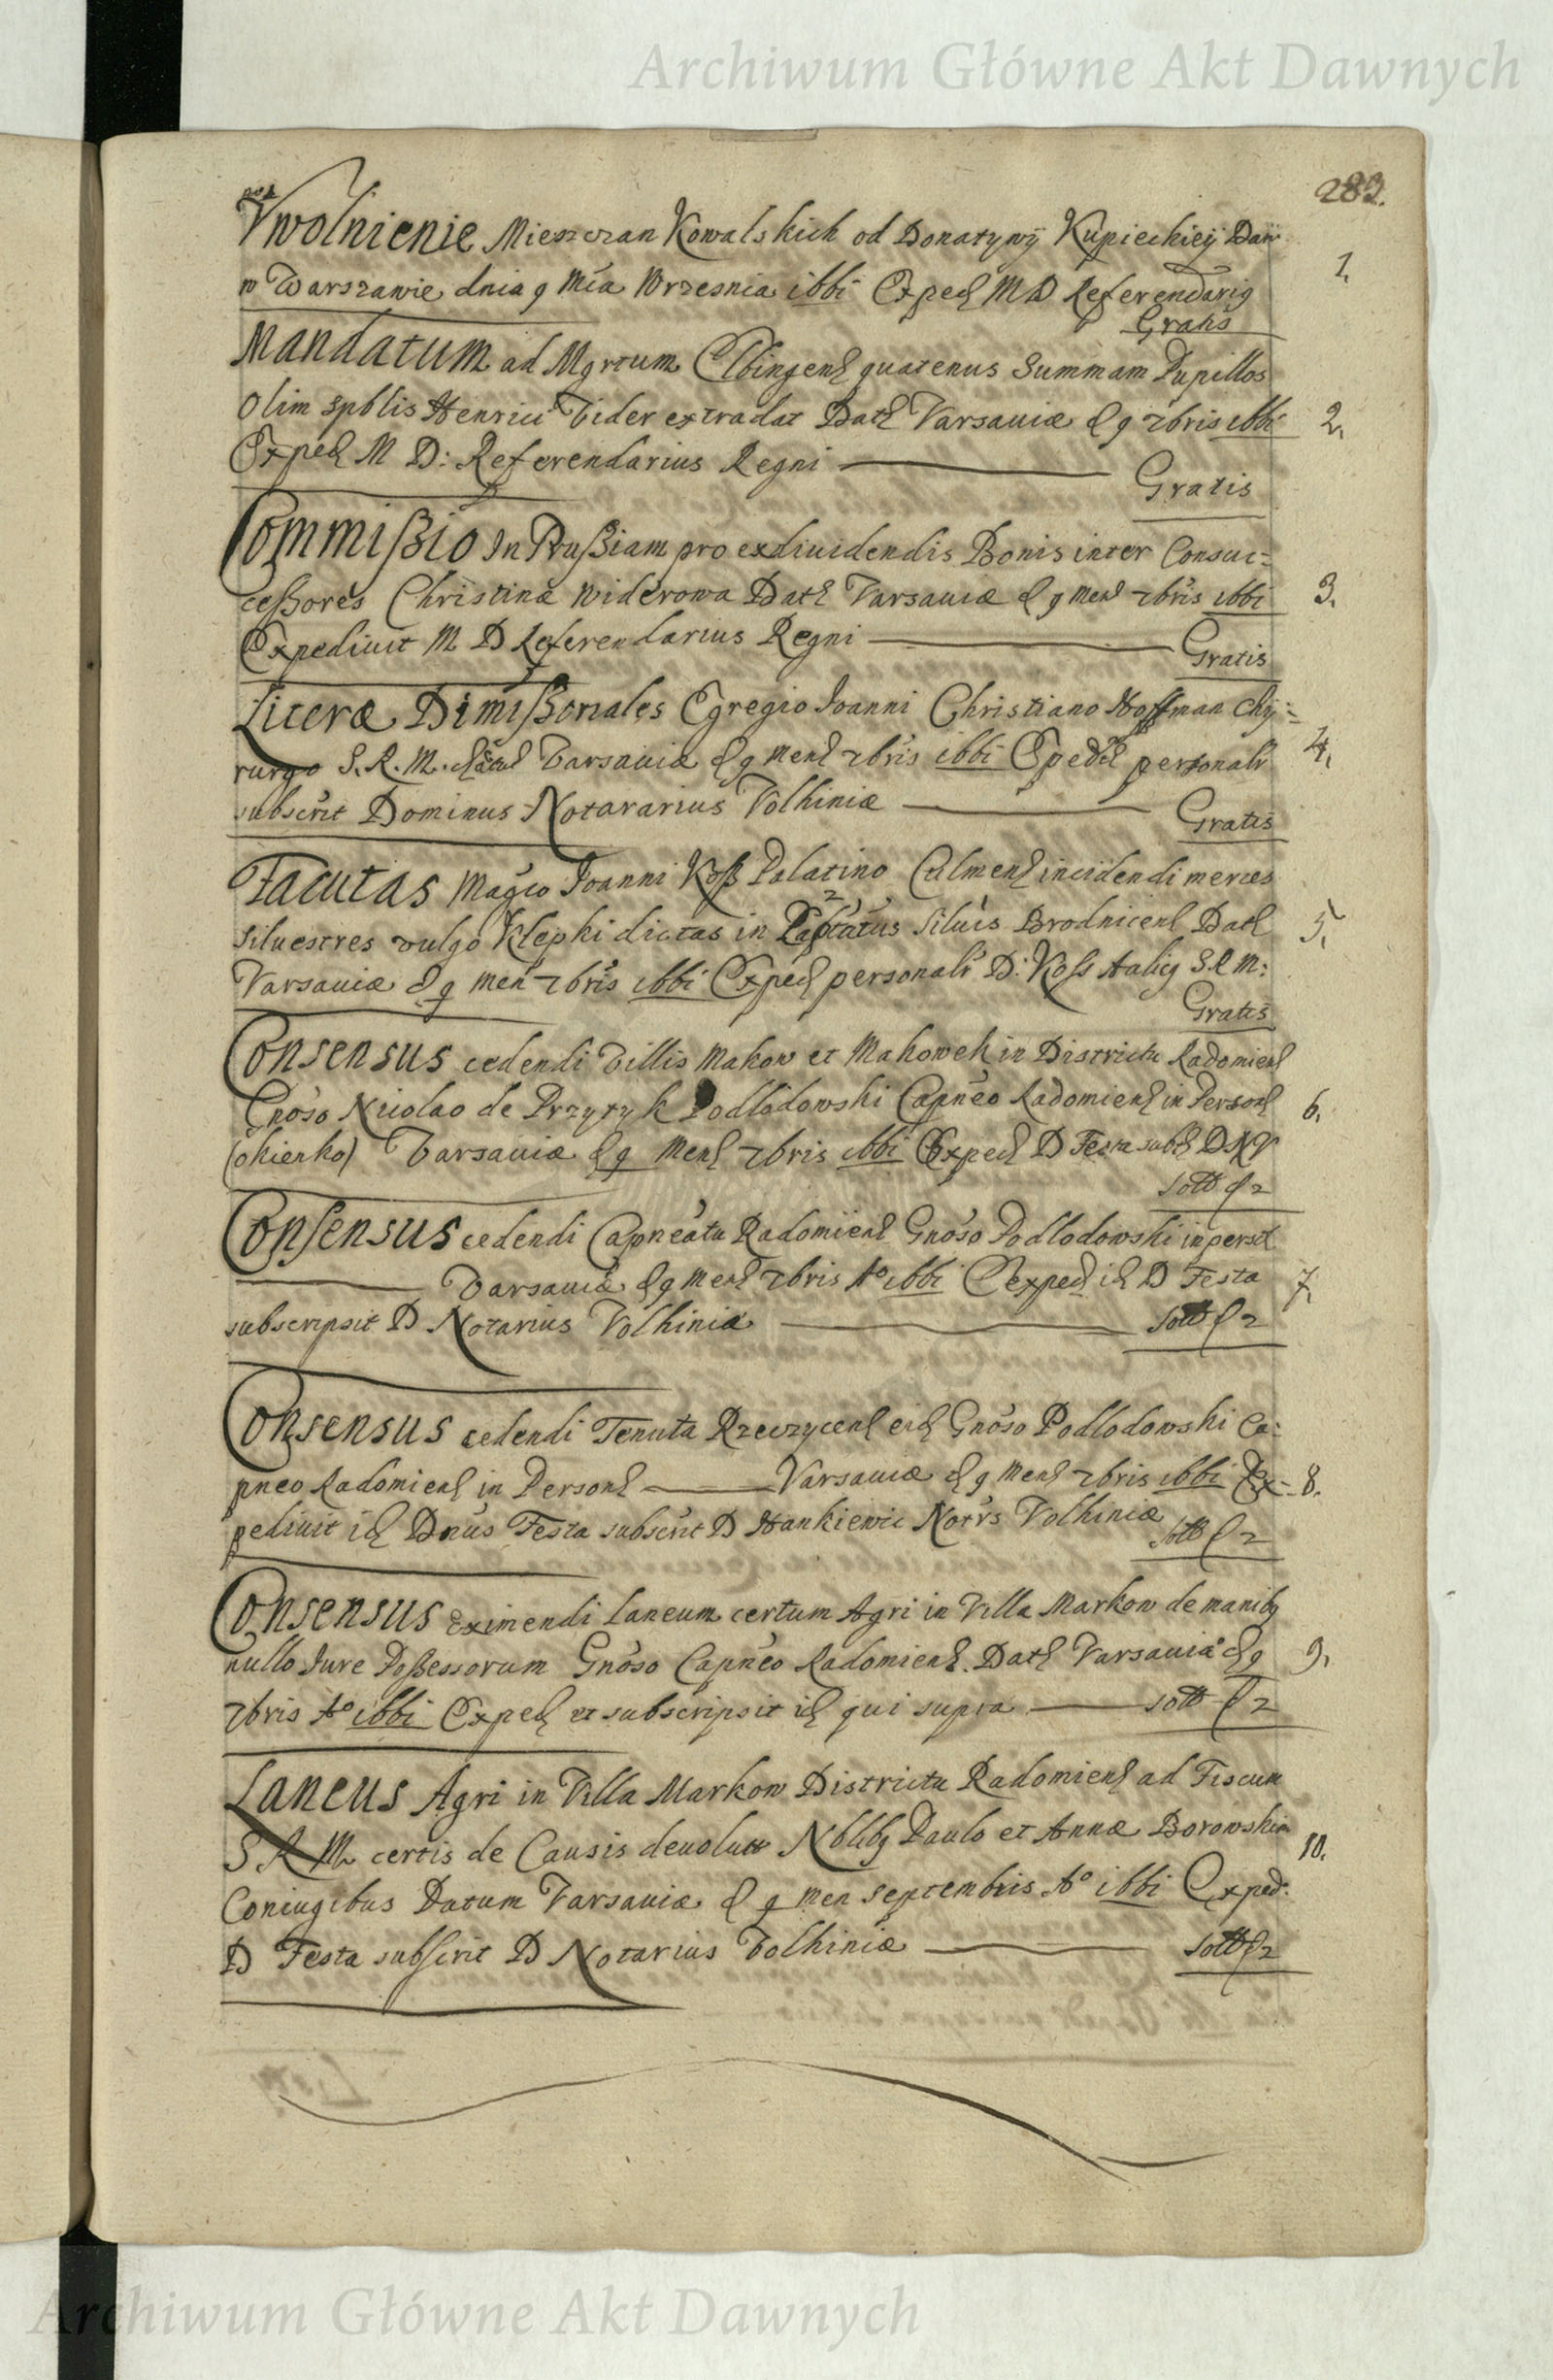 Archiwum Główne Akt Dawnych
289.
Vwolnienie Mieszczan Kowalskich od Donatywÿ Kupieckieÿ Dan
w Warszawie dnia 9 Mca Wrzesnia ibbi Exped M D Referendarig
1.
Gratis
Mandatum ad Mgrtum Elbingens quatenus Summam Pupillos
Olim Spblis Henrici Vider extradat Dat Varsauiæ d 9 7bris ibbi
2.
Exped M D: Referendarius Regni
Gratis
Commißio In Prußiam pro exdiuidendis Bonis inter Consuc=
ceßores Christinæ Widerowa Dat Varsauiæ d 9 Mens 7bris ibbi
3.
Expediuit M D Referendarius Regni
Gratis
Literæ Dimißoriales Egregio Joanni Christiano Hoffman Chÿ=
rurgo S. R. M. Varsauiæ d 9 Mens 7bris ibbi personalr
4.
subscrit Dominus Notararius Volhiniæ
Gratis
Facutas Magco Joanni Koß Palatino Culmens incidendi merces
siluestres vulgo Klephi dictas in Siluis Brodnicens Dat
5.
Varsauiæ d 9 men 7bris ibbi Exped personalr D: Koss Aulicg S R M:
Gratis
Consensus cedendi Villis Makow et Makowek in Districtu Radomiens
Gnoso Nicolao de Przytyk Podlodowski Capneo Radomiens in Person
6.
(okienko) Varsauiæ d 9 Mens 7bris ibbi Exped D Festa subs D N V
sott f 2
Consensus cedendi Capneatu Radomiens Gnoso Podlodowski in pers
Varsauiæ d 9 Mens 7bris Ao ibbi exped id D Festa
7.
subscripsit D Notarius Volhiniæ
sott f 2
Consensus cedendi Tenuta Rzeczycens eid Gnoso Podlodowski Ca:
pneo Radomiens in Person Varsauiæ d 9 Mens 7bris ibbi Ex-
8.
pediuit id Dnus Festa subscrit D Hankiewic Notrs Volhiniæ
sott f 2
Consensus eximendi Laneum certum Agri in Villa Markow de manibg
nullo Jure Poßessorum Gnoso Capneo Radomiens. Dat Varsauiæ d 9
9.
7bris Ao ibbi Exped et subscripsit id qui supra sott f 2
Laneus Agri in Villa Markow Districtu Radomiens ad Fiscum
S R M certis de Causis deuolut Nblibg Paulo et Annæ Borowskie
10.
Coniugibus Datum Varsauiæ d 9 men Septembris Ao ibbi Exped:
D Festa subscrit D Notarius Volhiniæ
sott f 2
Archiwum Główne Akt Dawnych